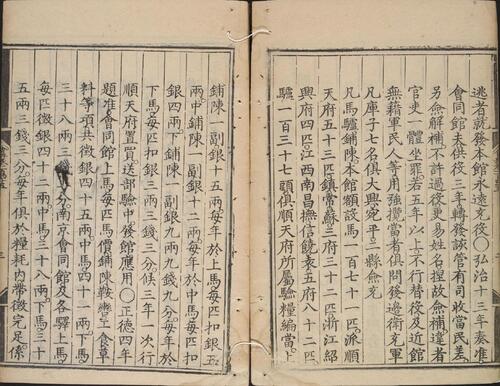 逃者就發本館永遠充役○弘治十三年奏准
會同館夫供役三年轉發該管有司收當民差
另僉解補不許過役更易姓名捏故僉補違者
官吏一體坐罪若五年以上不行替役及近館
無藉軍民人等用強攬當者俱問發邊衛充軍
凡庫子七名俱大興宛平二縣僉充
凡馬驢鋪陳本館額設馬一百七十一匹派順
天府五十三匹鎮常蘇三府三十二匹浙江紹
興府四匹江西南昌撫信饒袁五府八十二匹
驢一百三十七頭俱順天府所屬驗糧編當上
鋪陳一副銀十五兩年於上馬每匹扣銀五
兩中鋪陳一副銀十二兩每年於中馬每匹扣
銀四兩下鋪陳一副銀九兩九錢九分每年於
下馬每匹扣銀三兩三錢三分候三年一次行
順天府置買送部驗中發館應用○正德四年
題准會同館上馬每匹馬價鋪陳鞍轡土食草
料等項共徵銀四十五兩中馬四十二兩下馬
三十八兩三錢分南京會同館及各驛上馬
每匹徵銀四十二兩中馬三十八兩下馬三十
五兩三錢三分每年俱於糧耗內帶徵完足係